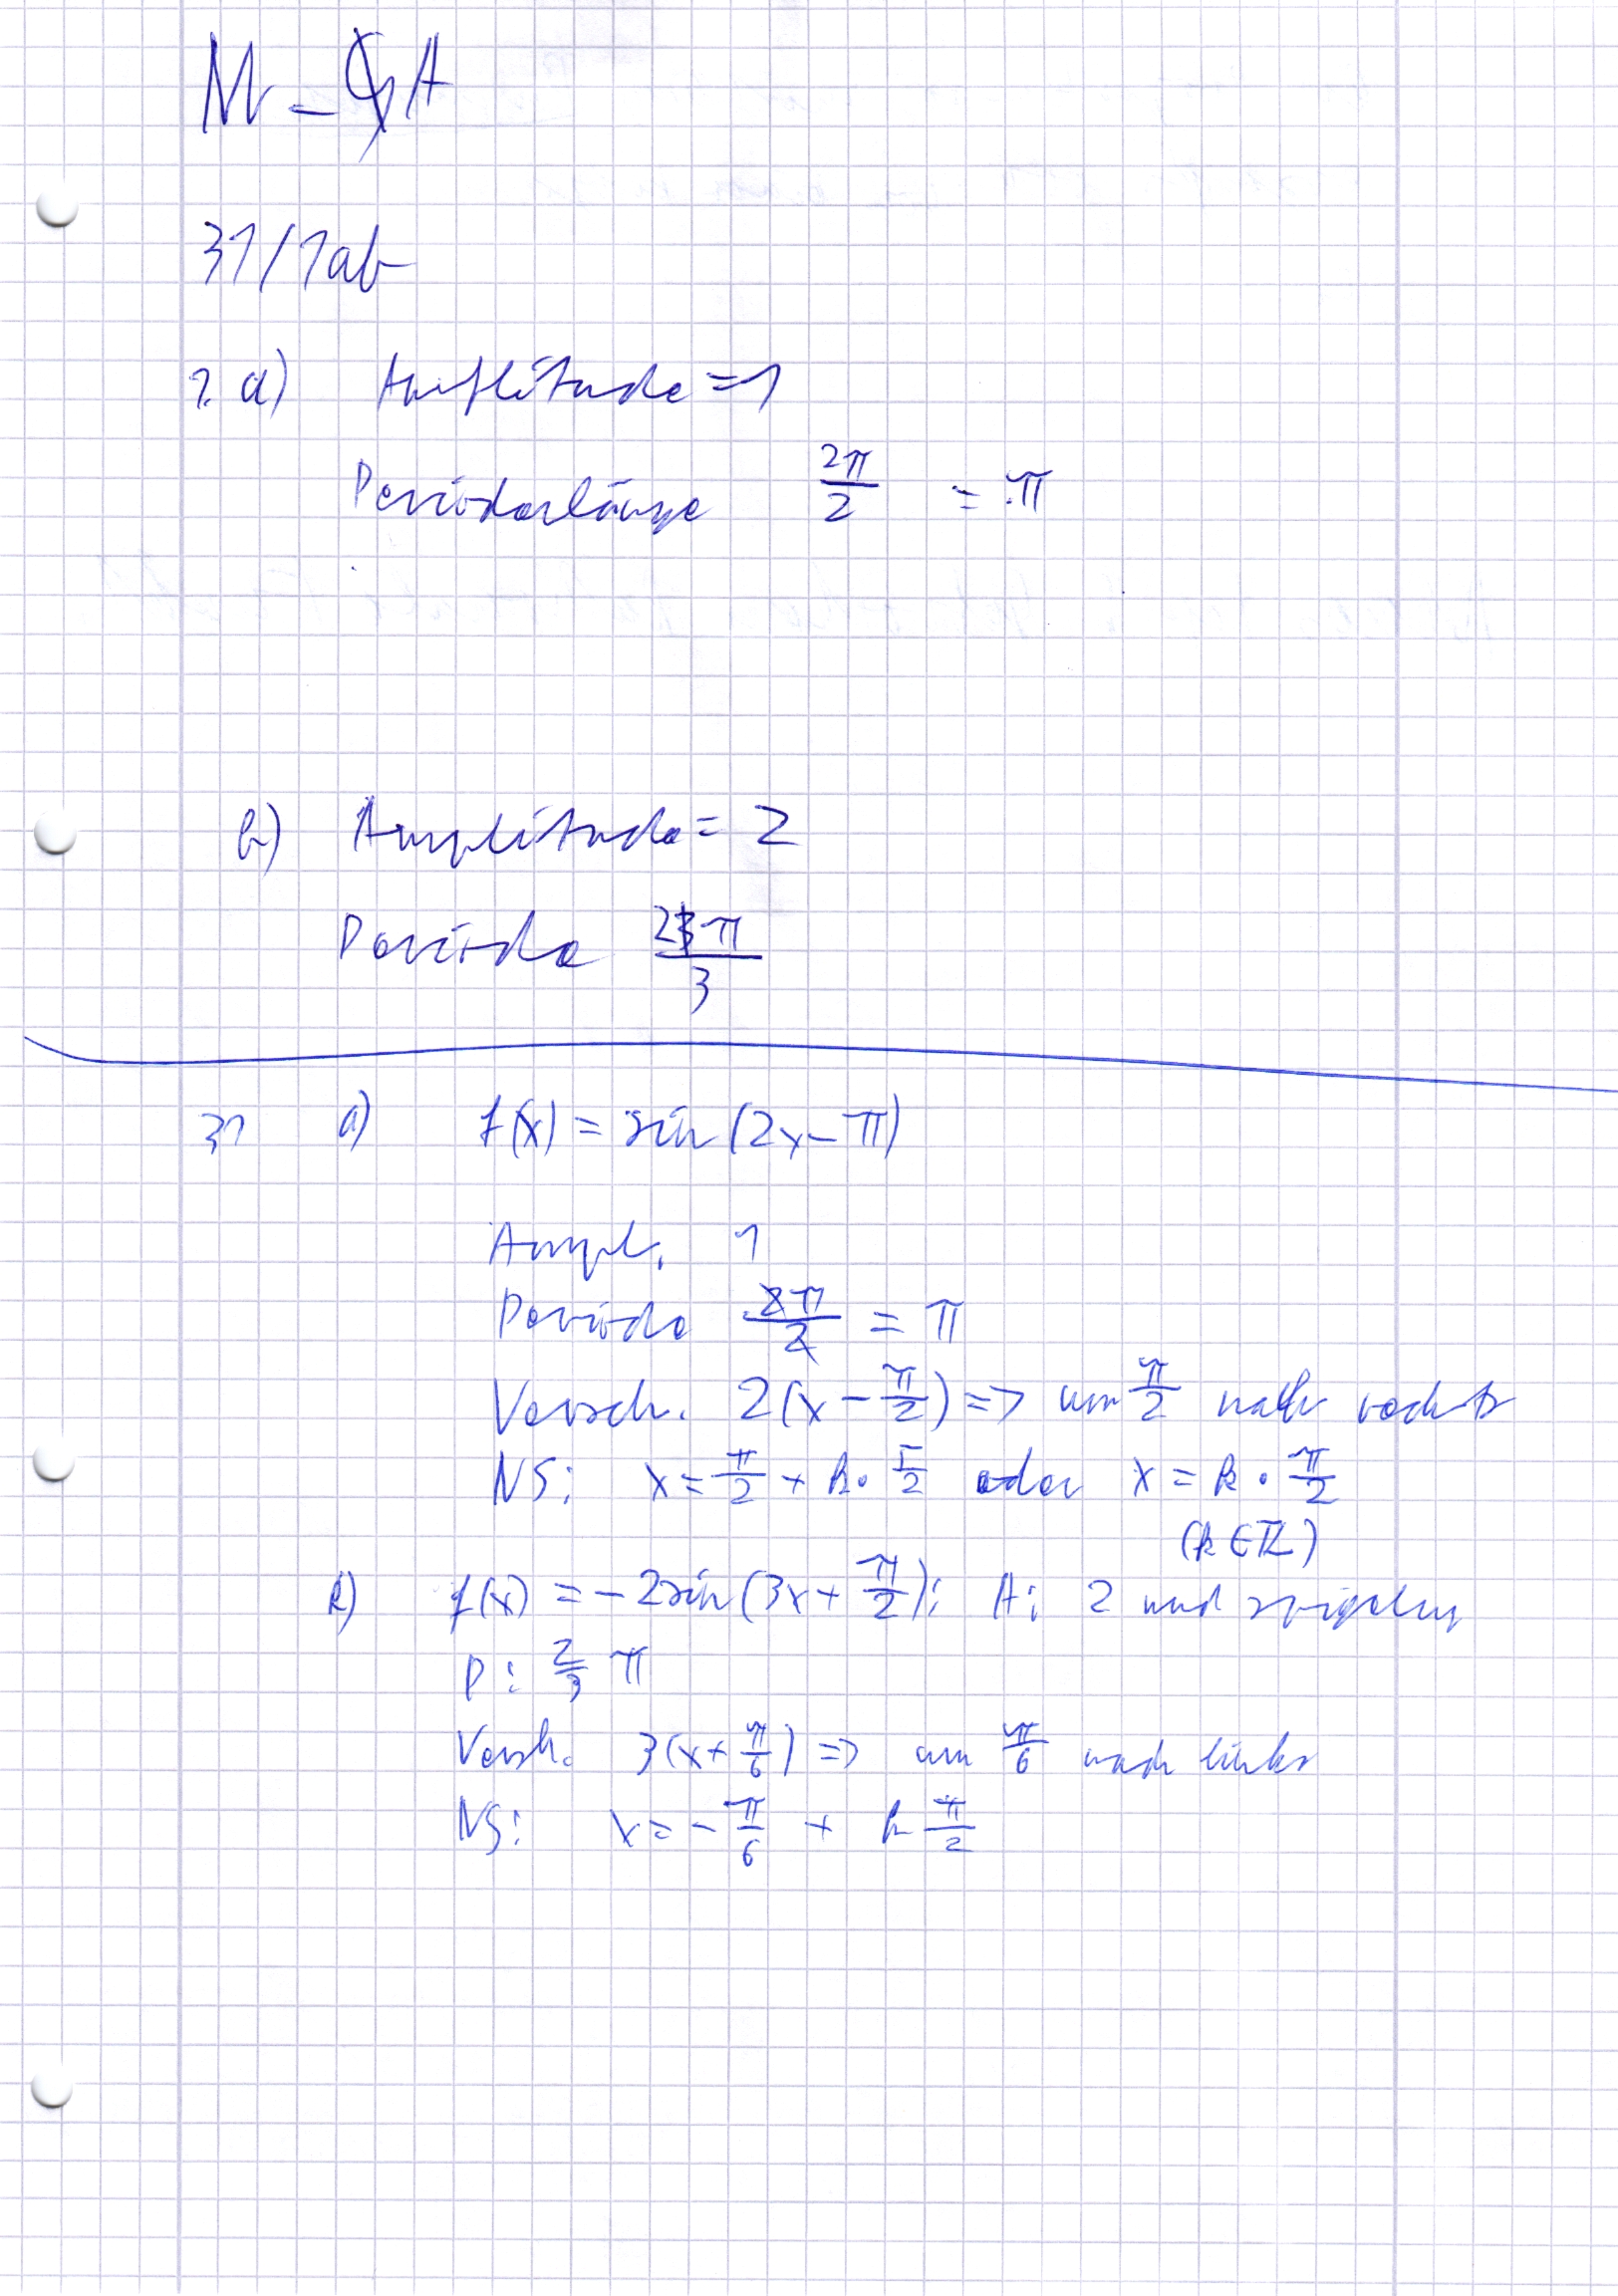 31/1ab
1. a) Amplitude = 1
Periodenlänge 2π/2 = π
b) Amplitude = 2
Periode 2π/3
31 a) f(x) = sin(2x-π)
Ampl. 1
Periode 2π/2 = π
Versch. 2(x - π/2) => um π/2 nach rechts
NS: x = π/2 + k · π/2 oder x = k · π/2
(k ∈ ℤ)
b) f(x) = -2sin(3x + π/2); A: 2 und
P: 2/3 π
Versch. 3(x + π/6) => um π/6 nach links
NS: x = - π/6 + k π/2